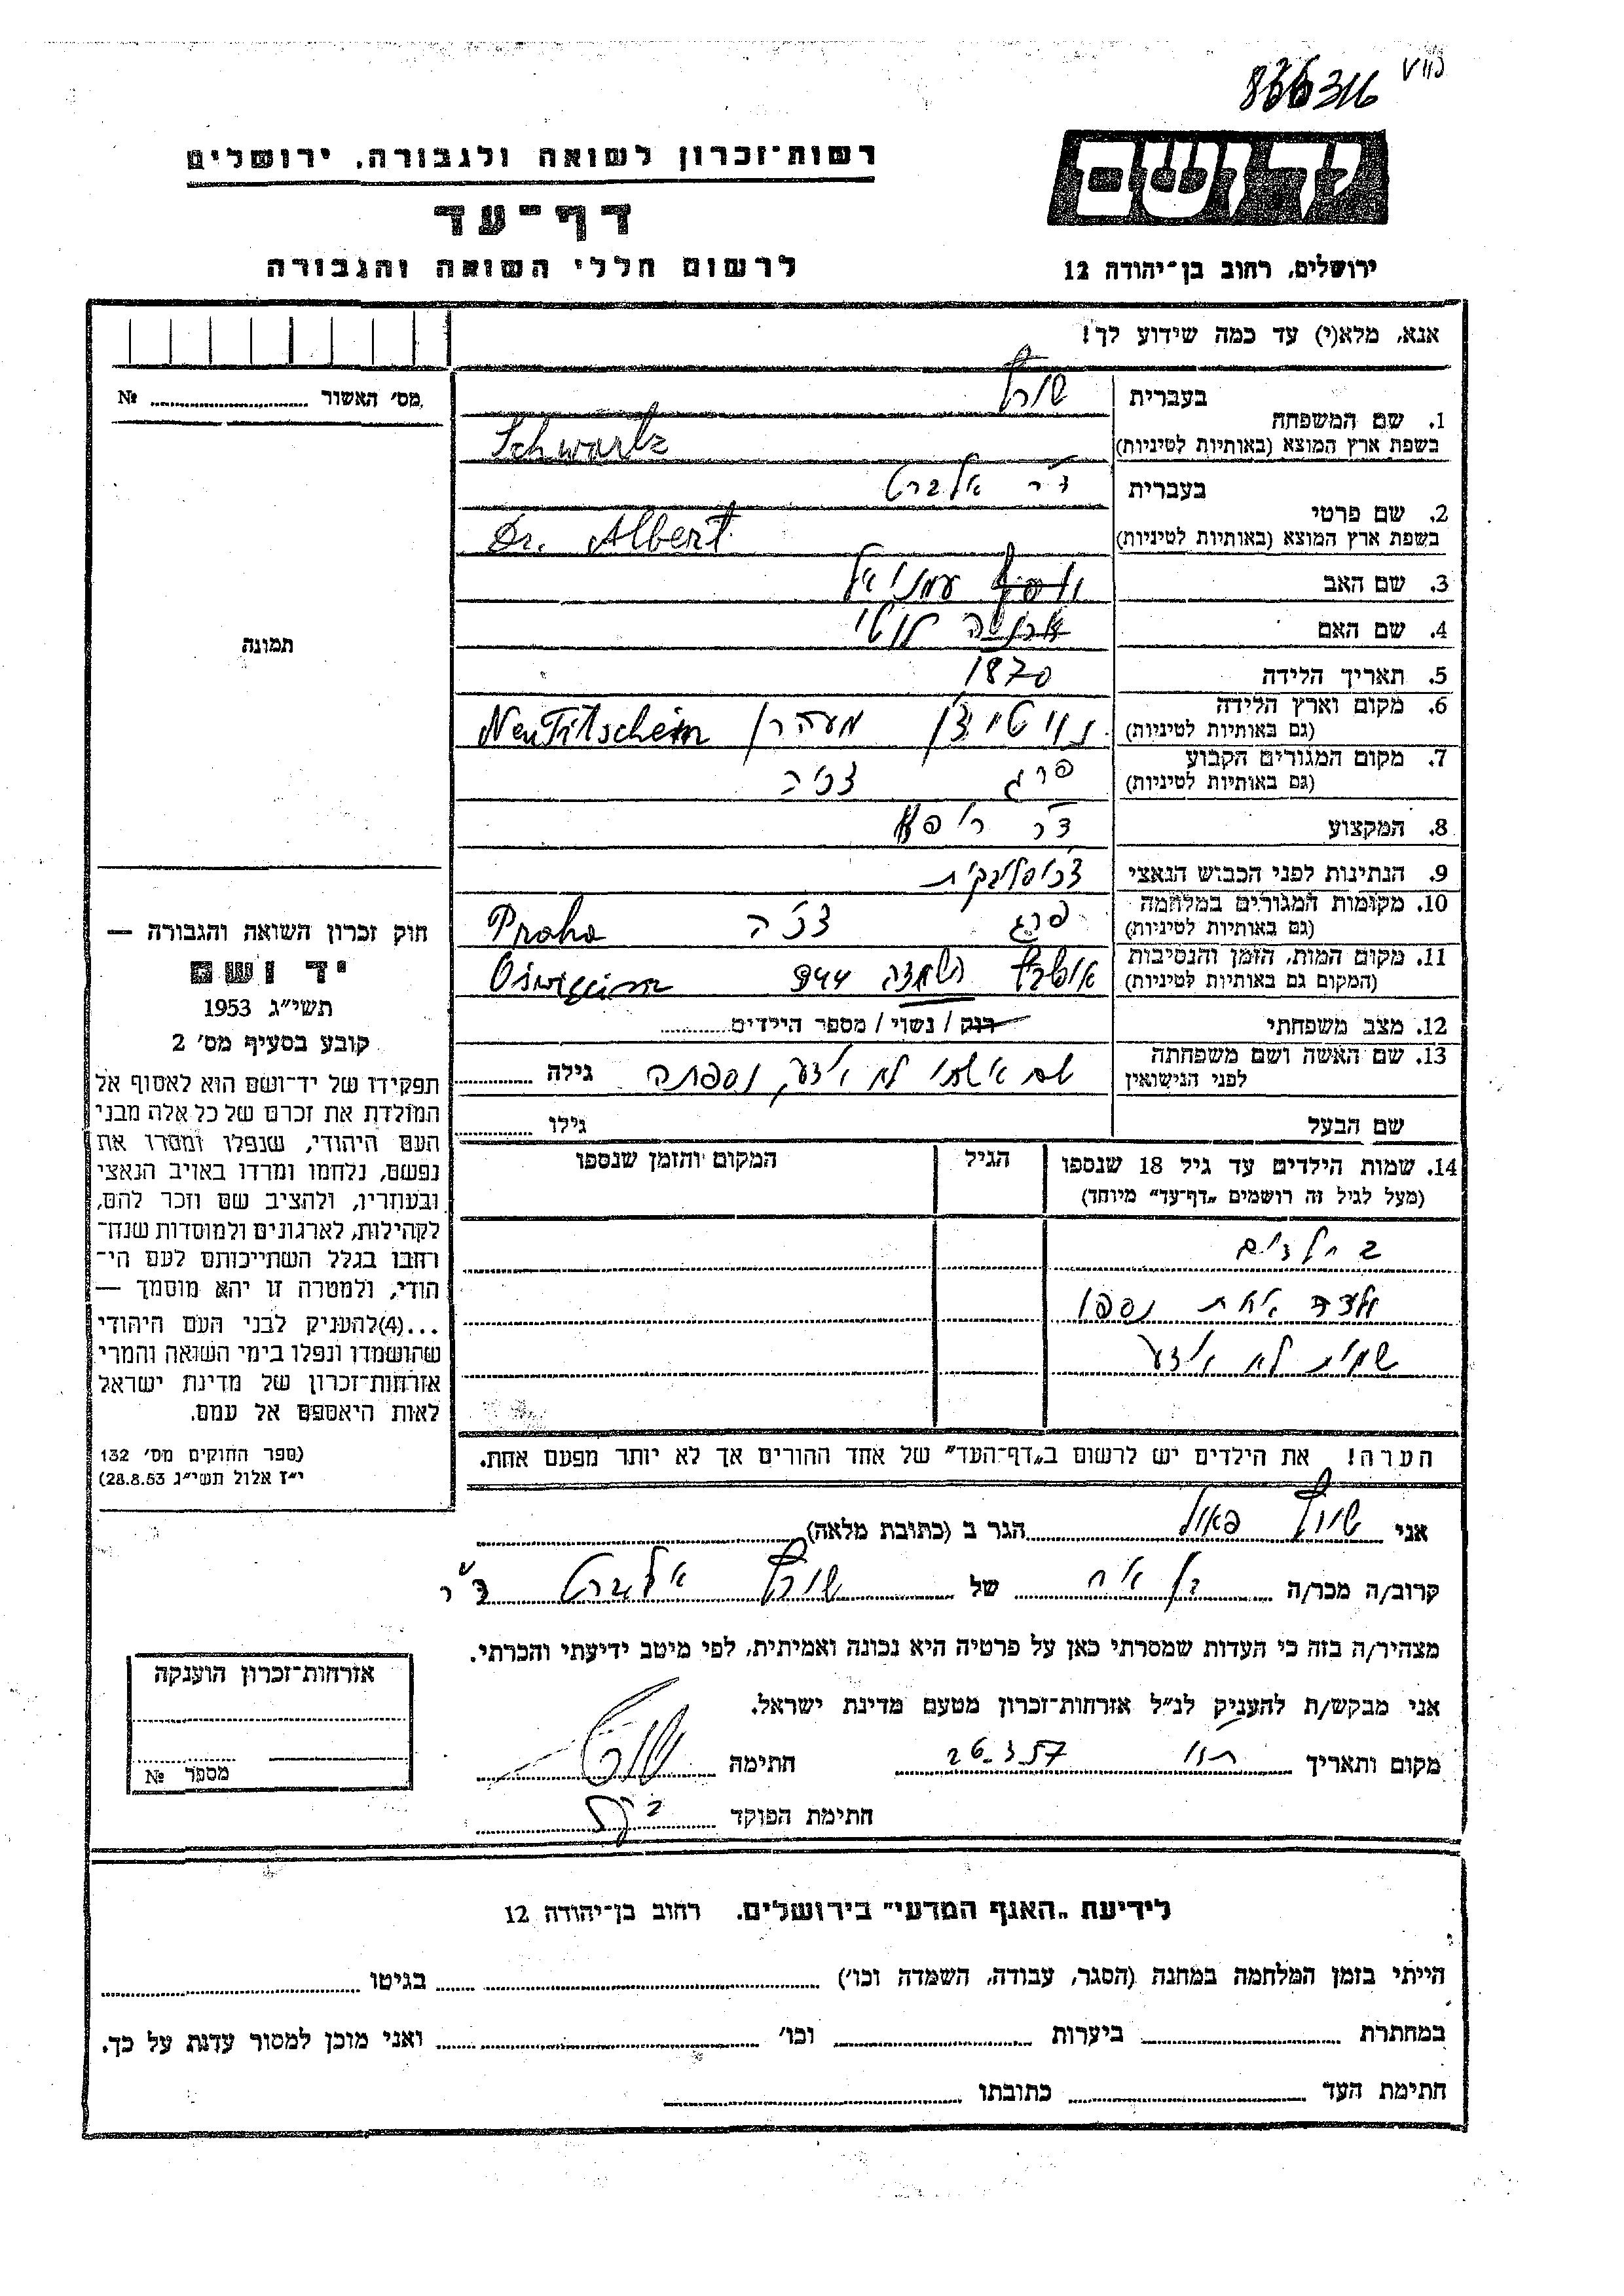 836316
יד ושם
רשות־זכרון לשואה ולגבורה, ירושלים
דף־עד
לרשום חללי השואה והגבורה
ירושלים, רחוב בן־יהודה 12
אנא, מלא(י) עד כמה שידוע לך!
מס׳ האשור №
תמונה
חוק זכרון השואה והגבורה —
יד ושם
תשי״ג 1953
קובע בסעיף מס׳ 2
תפקידו של יד־ושם הוא לאסוף אל
המולדת את זכרם של כל אלה מבני
העם היהודי, שנפלו ומסרו את
נפשם, נלחמו ומרדו באויב הנאצי
ובעוזריו, ולהציב שם וזכר להם,
לקהילות, לארגונים ולמוסדות שנח־
רחבו בגלל השתייכותם לעם הי־
הודי, ולמטרה זו יהא מוסמך —
...(4)להעניק לבני העם היהודי
שהושמדו ונפלו בימי השואה והמרי
אזרחות־זכרון של מדינת ישראל
לאות היאספם אל עמם.
(ספר החוקים מס׳ 132
י״ז אלול תשי״ג 28.8.53)
1. שם המשפחה בעברית שורץ
בשפת ארץ המוצא (באותיות לטיניות) Schwartz
2. שם פרטי בעברית ד״ר אלברט
בשפת ארץ המוצא (באותיות לטיניות) Dr. Albert
3. שם האב יוסף עמנואל
4. שם האם לוטי
5. תאריך הלידה 1870
6. מקום וארץ הלידה
(גם באותיות לטיניות) נויטיצין מעהרן NeuTitschein
7. מקום המגורים הקבוע
(גם באותיות לטיניות) פרג צ׳כיה
8. המקצוע ד״ר
9. הנתינות לפני הכבוש הנאצי צ׳כוסלובקית
10. מקומות המגורים במלחמה
(גם באותיות לטיניות) פרג צ׳כיה Praha
11. מקום המות, הזמן והנסיבות
(המקום גם באותיות לטיניות) השמדה 944 Oswiecim
12. מצב משפחתי רוק / נשוי / מספר הילדים
13. שם האשה ושם משפחתה
לפני הנישואין שם אשתו לא ידוע, נספתה גילה
שם הבעל גילו
14. שמות הילדים עד גיל 18 שנספו הגיל המקום והזמן שנספו
(מעל לגיל זה רושמים „דף־עד״ מיוחד)
2 ילדים
נספו
שמות לא ידוע
הערה! את הילדים יש לרשום ב„דף־העד״ של אחד ההורים אך לא יותר מפעם אחת.
אני שורץ פאול הגר ב (כתובת מלאה)
קרוב/ה מכר/ה בן אח של שורץ אלברט ד״ר
מצהיר/ה בזה כי העדות שמסרתי כאן על פרטיה היא נכונה ואמיתית, לפי מיטב ידיעתי והכרתי.
אני מבקש/ת להעניק לנ״ל אזרחות־זכרון מטעם מדינת ישראל.
מקום ותאריך 26.3.57 חתימה
חתימת הפוקד
אזרחות־זכרון הוענקה
מספר №
לידיעת „האגף המדעי״ בירושלים. רחוב בן־יהודה 12
הייתי בזמן המלחמה במחנה (הסגר, עבודה, השמדה וכו׳) בגיטו
במחתרת ביערות וכו׳ ואני מוכן למסור עדות על כך.
חתימת העד כתובתו